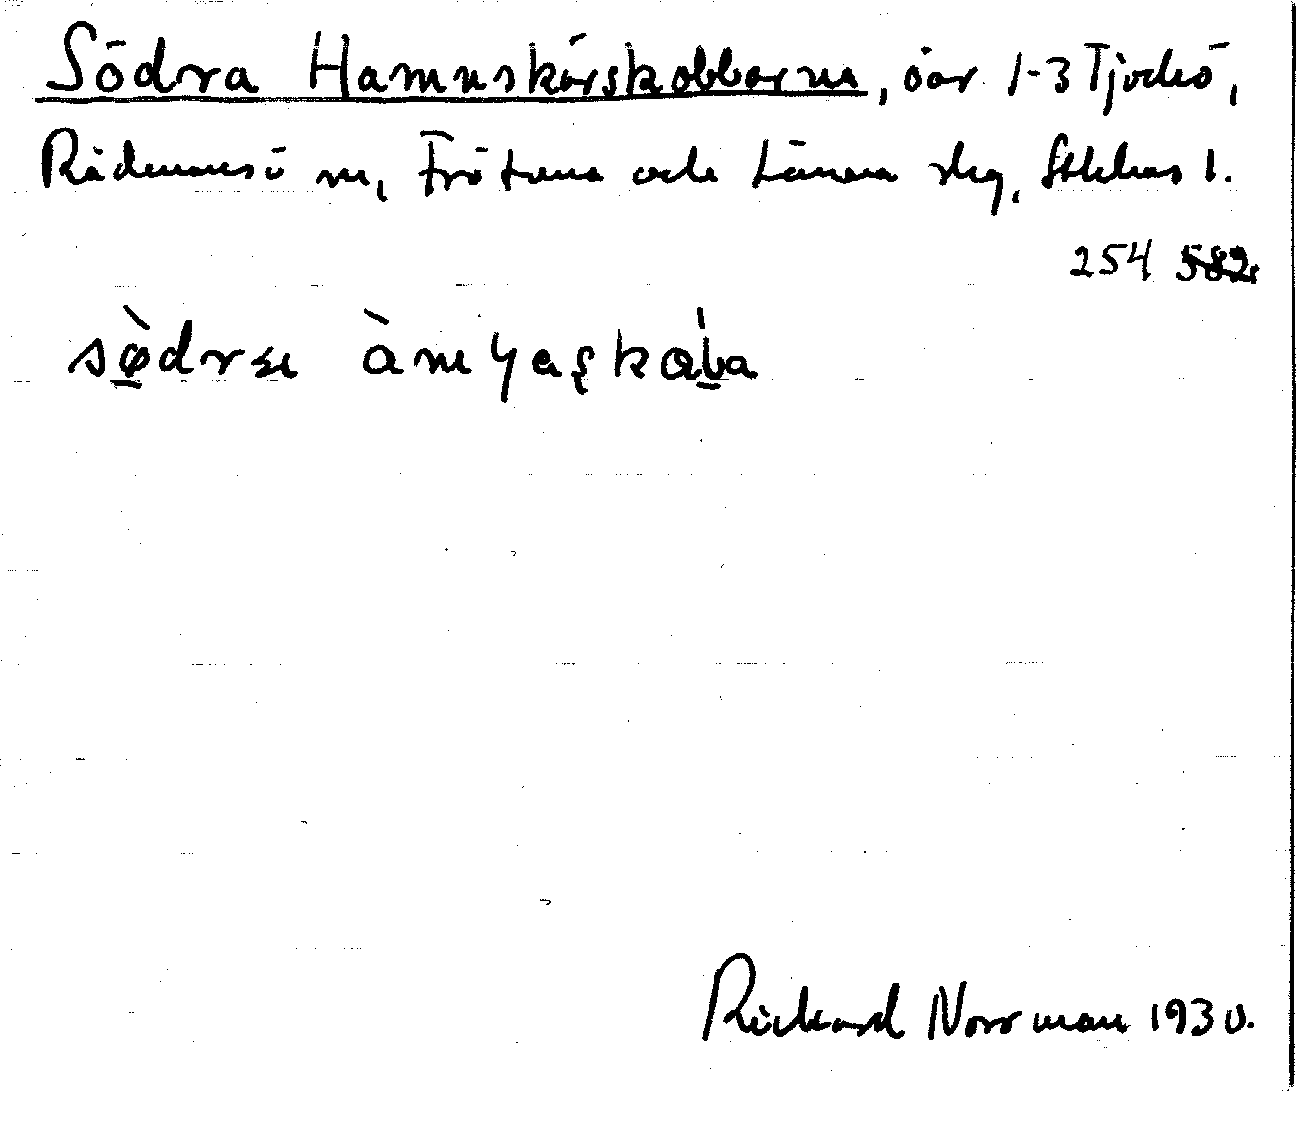 Södra Hamnskärskobbarna, öar 1-3 Tjockö,
Rådmansö sn, Frötuna och Länna skg, Sthlms l.
254 582
södrae àmʮaskàba
Rickard Norrman 1930.